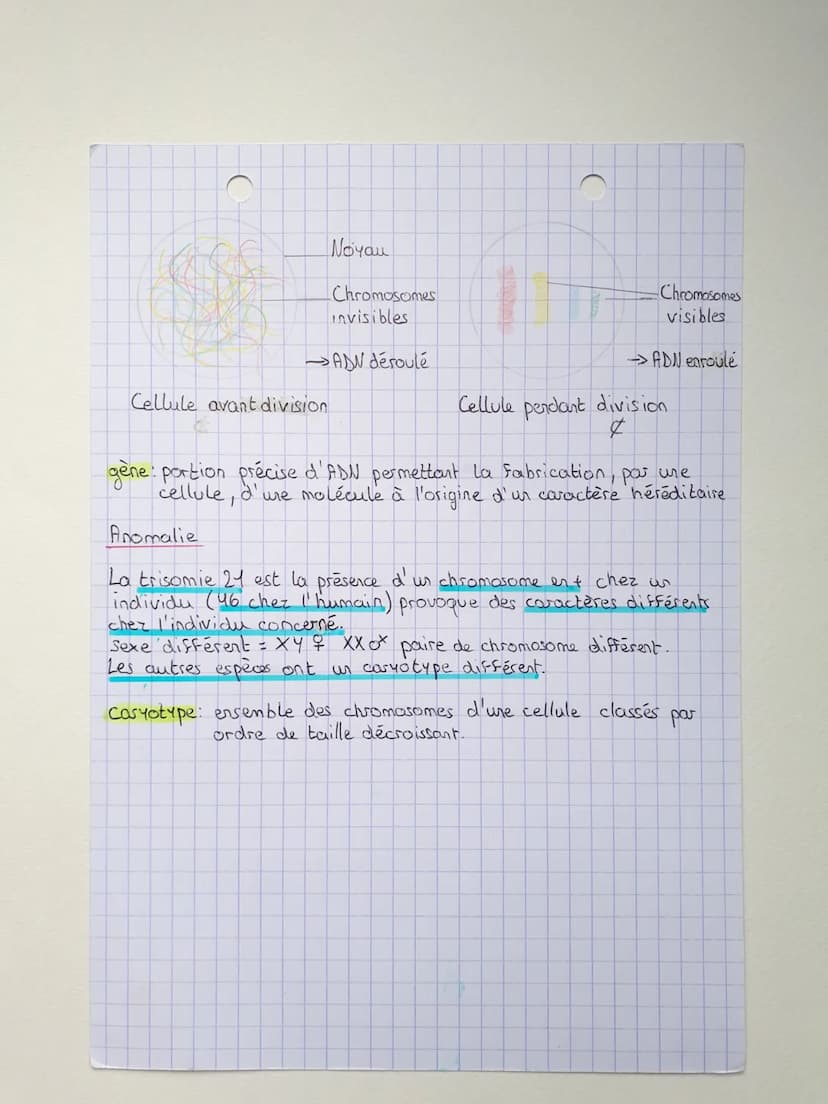 Noyau
Chromosomes
invisibles
→ ADN déroulé
Cellule avant division
Chromosomes
visibles
→ ADN enroulé
Cellule pendant division
gène: portion précise d'ADN permettant la fabrication, par une
cellule, d'une molécule à l'origine d'un caractère héréditaire
Anomalie
La trisomie 21 est la présence d'un chromosome en + chez un
individu (46 chez l'humain) provoque des caractères différents
chez l'individu concerné.
Sexe différent = XY ♀ XX ♂ paire de chromosome différent.
Les autres espèces ont un caryotype différent.
caryotype: ensemble des chromosomes d'une cellule classés par
ordre de taille décroissant.